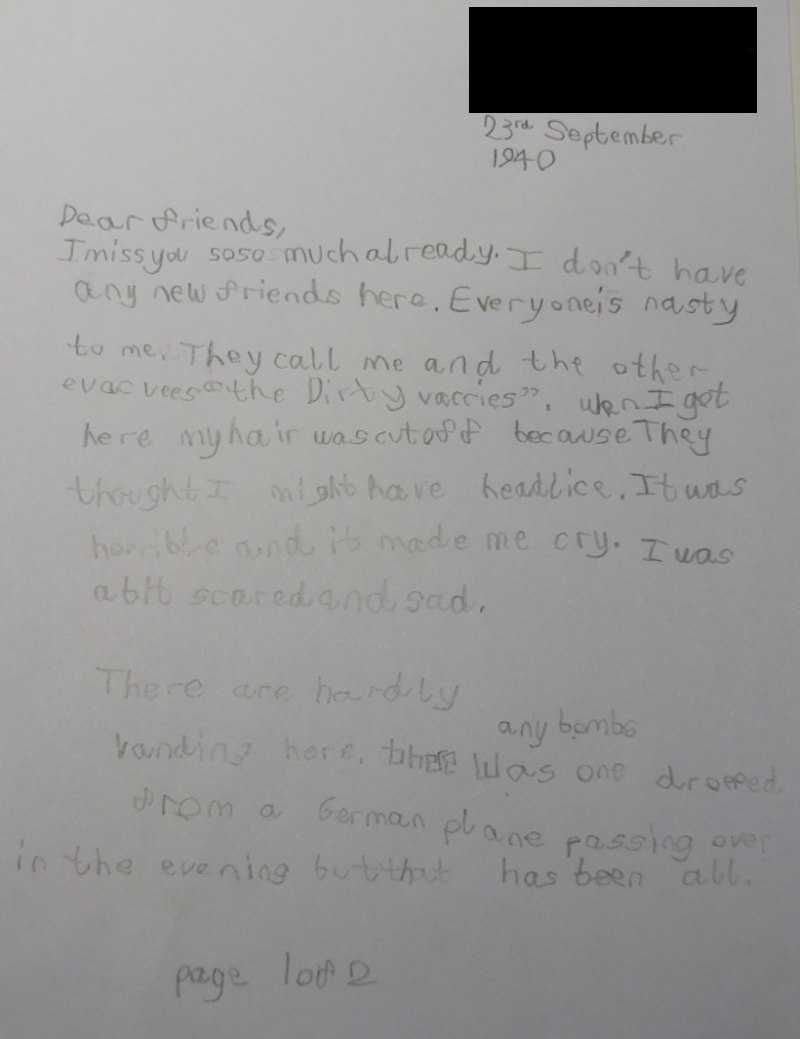 23rd September
1940
Dear friends,
I miss you so so much already. I don't have
any new friends here. Everyone is nasty
to me. They call me and the other
evacvees "the Dirty vaccies". when I got
here my hair was cut off because They
thought I might have headlice. It was
horrible and it made me cry. I was
a bit scared and sad.
There are hardly
any bombs
landing here. there was one dropped
from a German plane passing over
in the evening but that has been all.
page 1 of 2